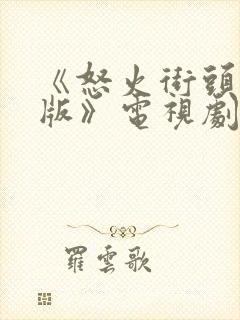 《怒火街頭
版》電視劇
羅雲歌